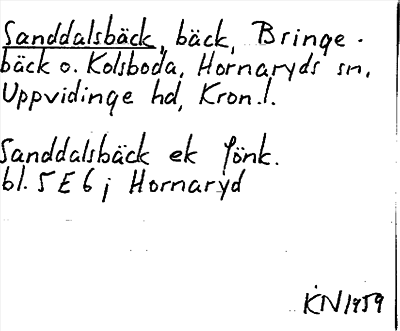 Sanddalsbäck, bäck, Bringe-
bäck o. Kolsboda, Hornaryds sn,
Uppvidinge hd, Kron. l.
Sanddalsbäck ek Jönk.
bl. 5 E 6 j Hornaryd
KN 1959